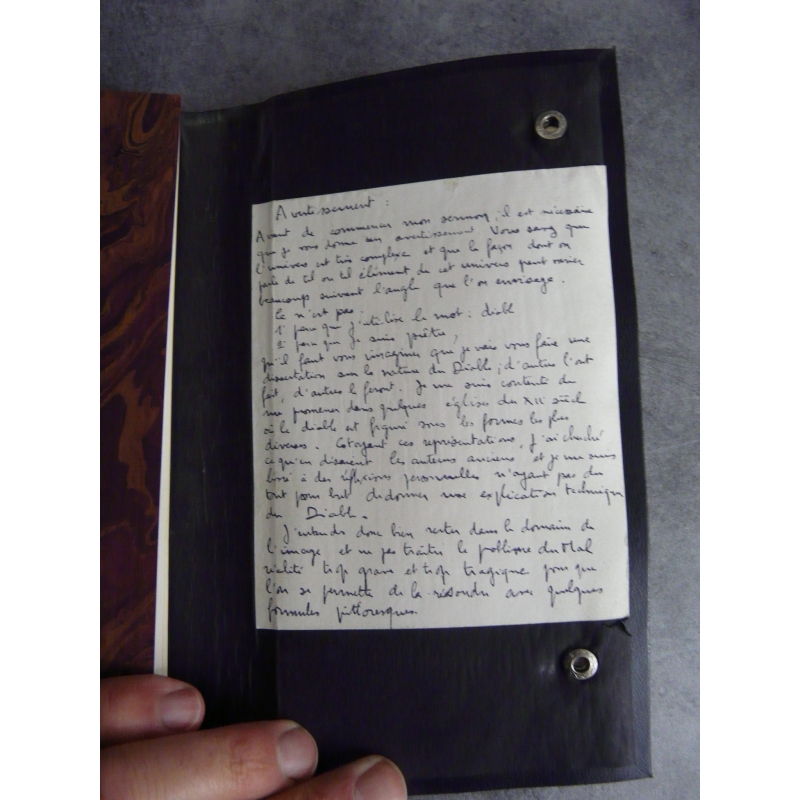 Avertissement :
Avant de commencer mon sermon, il est nécessaire
que je vous donne un avertissement. Vous savez que
l'univers est très complexe et que la façon dont on
parle de tel ou tel élément de cet univers peut varier
beaucoup suivant l'angle que l'on envisage.
Ce n'est pas :
1° parce que j'utilise le mot : diable
2° parce que je suis prêtre,
qu'il faut vous imaginer que je vais vous faire une
dissertation sur la nature du Diable ; d'autres l'ont
fait, d'autres le feront. Je me suis contenté de
me promener dans quelques églises du XIIe siècle
où le diable est figuré sous les formes les plus
diverses. Cotoyant ces représentations, j'ai cherché
ce qu'en disaient les auteurs anciens et je me suis
livré à des réflexions personnelles n'ayant pas du
tout pour but de donner une explication technique
du Diable.
J'entends donc bien rester dans le domaine de
l'image et ne pas traiter le problème du Mal
réalité trop grave et trop tragique pour que
l'on se permette de la résoudre avec quelques
formules pittoresques.